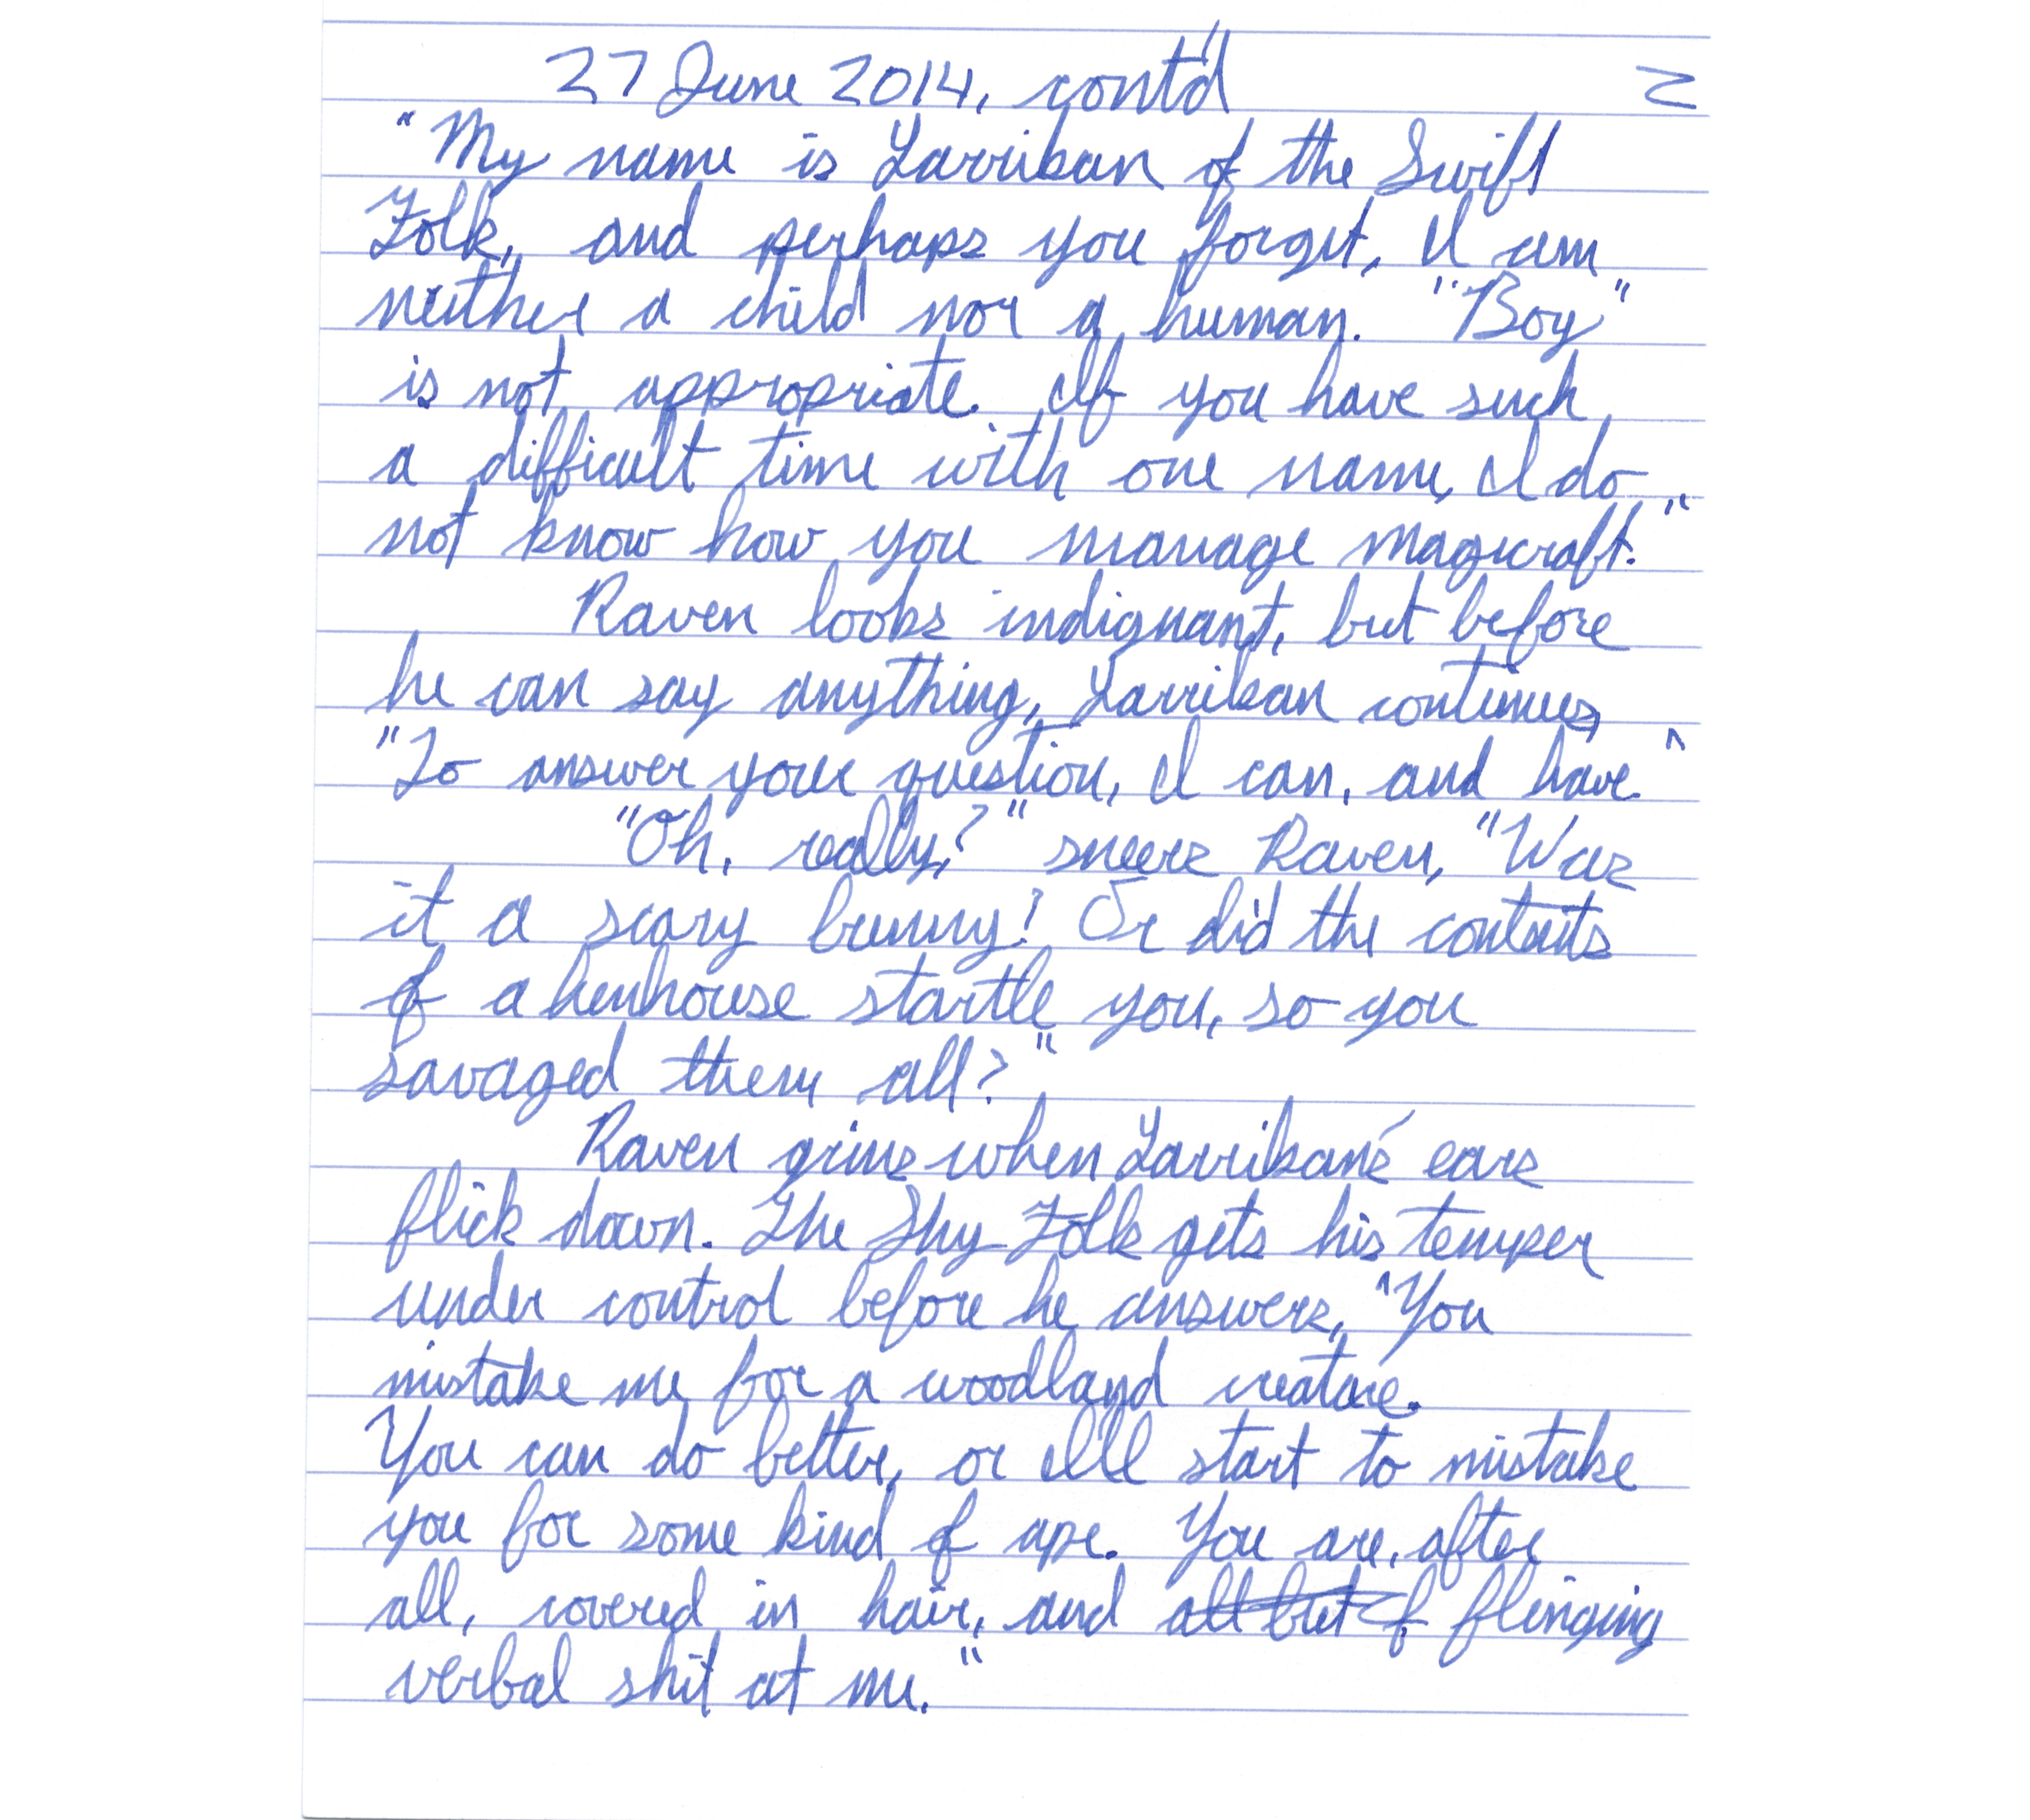 27 June 2014, cont'd 2
"My name is Larriban of the Swift
Folk, and perhaps you forget, I am
neither a child nor a human. "Boy"
is not appropriate. If you have such
a difficult time with one name, I do
not know how you manage magicraft."
Raven looks indignant, but before
he can say anything, Larriban continues,
"To answer your question, I can, and have."
"Oh, really?" sneers Raven, "Was
it a scary bunny? Or did the contents
of a henhouse startle you, so you
savaged them all?"
Raven grins when Larriban's ears
flick down. The Shy Folk gets his temper
under control before he answers, "You
mistake me for a woodland creature.
You can do better, or I'll start to mistake
you for some kind of ape. You are, after
all, covered in hair, and all but f flinging
verbal shit at me."